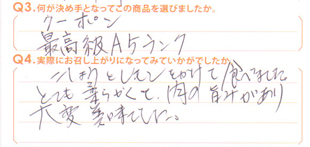 Q3.何が決め手となってこの商品を選びましたか。
クーポン
最高級A5ランク
Q4.実際にお召し上がりになってみていかがでしたか。
こしょうとレモンをかけて食べました
とても柔らかくて、肉の旨みがあり
大変美味でした。